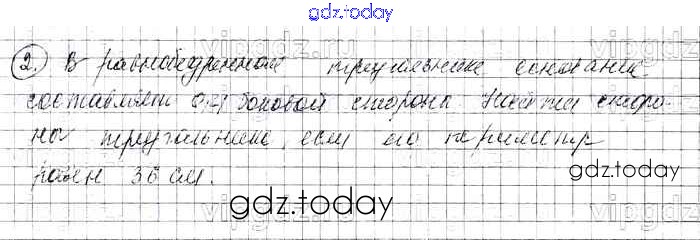 gdz.today
2. В равнобедренном треугольнике основание
составляет 0,4 боковой стороны. Найти сторо-
ны треугольника, если его периметр
равен 36 см.
gdz.today
gdz.today